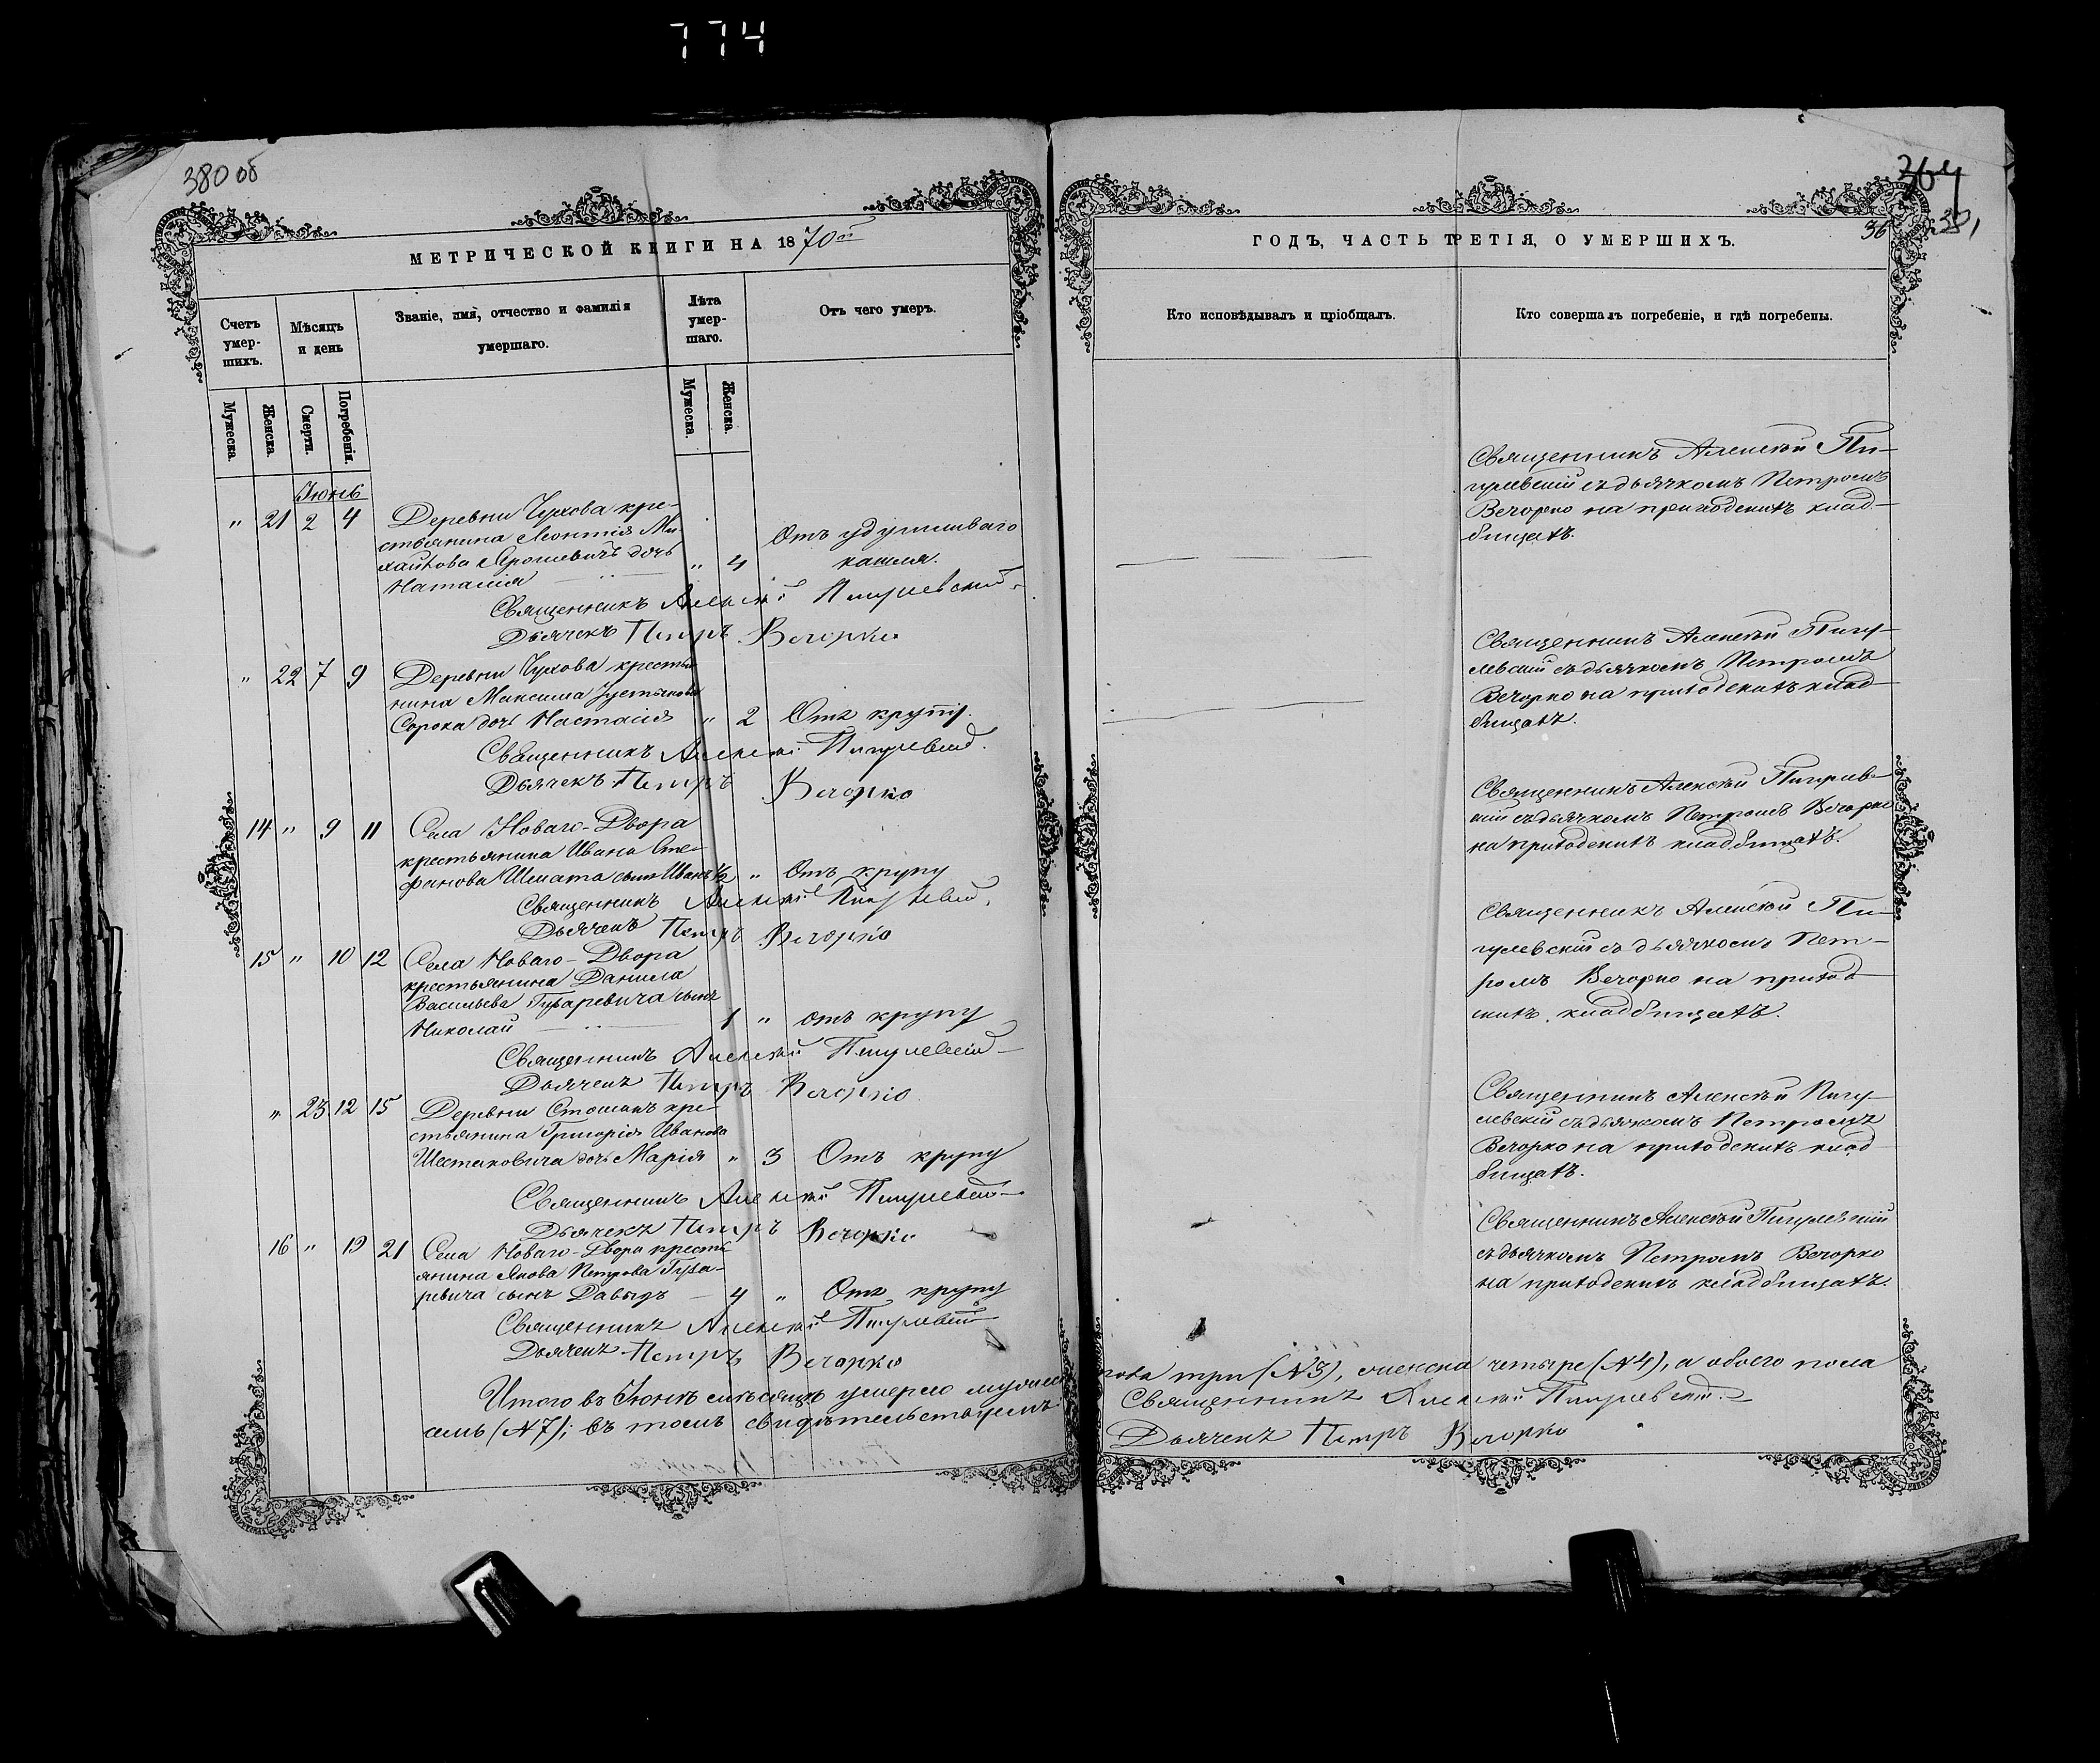 774
380 об
364
381
МЕТРИЧЕСКОЙ КНИГИ НА 1870ый
ГОДЪ, ЧАСТЬ ТРЕТІЯ, О УМЕРШИХЪ.
36
Счетъ умер-
шихъ.
Мѣсяцъ
и день
Званіе, имя, отчество и фамилія
умершаго.
Лѣта
умер-
шаго.
Отъ чего умеръ.
Кто исповѣдывалъ и пріобщалъ.
Кто совершалъ погребеніе, и гдѣ погребены.
Мужеска.
Женска.
Смерти.
Погребенія.
Мужеска.
Женска.
Іюнь
" 21 2 4 Деревни Чухова кре-
стьянина Леонтія Ми-
хайлова дочь
Наталія " 4 Отъ удушливаго
кашля.
Священникъ Алексѣй Пигулевскій
Дьячекъ Петръ Вечорко
Священникъ Алексѣй Пи-
гулевскій съ дьячкомъ Петромъ
Вечорко на приходскихъ клад-
бищахъ.
" 22 7 9 Деревни Чухова крестья-
нина Максима
Сорока дочь Настасія " 2 Отъ крупу.
Священникъ Алексѣй Пигулевскій
Дьячекъ Петръ Вечорко
Священникъ Алексѣй Пигу-
левскій съ дьячкомъ Петромъ
Вечорко на приходскихъ клад-
бищахъ.
14 " 9 11 Села Новаго-Двора
крестьянина Ивана Сте-
фанова Шпата сынъ Иванъ 1/2 " Отъ крупу
Священникъ Алексѣй Пигулевскій
Дьячекъ Петръ Вечорко
Священникъ Алексѣй Пигулев-
скій съ дьячкомъ Петромъ Вечорко
на приходскихъ кладбищахъ.
15 " 10 12 Села Новаго-Двора
крестьянина Данила
Васильева Гузаревича сынъ
Николай 1 " отъ крупу
Священникъ Алексѣй Пигулевскій
Дьячекъ Петръ Вечорко
Священникъ Алексѣй Пи-
гулевскій съ дьячкомъ Пет-
ромъ Вечорко на приход-
скихъ кладбищахъ.
" 23 12 15 Деревни Стошанъ кре-
стьянина Григорія Иванова
Шестаковича дочь Марія " 3 Отъ крупу
Священникъ Алексѣй Пигулевскій
Дьячекъ Петръ Вечорко
Священникъ Алексѣй Пигу-
левскій съ дьячкомъ Петромъ
Вечорко на приходскихъ клад-
бищахъ.
16 " 19 21 Села Новаго-Двора кресть-
янина Якова Петрова Гуза-
ревича сынъ Давыдъ 4 " Отъ крупу
Священникъ Алексѣй Пигулевскій
Дьячекъ Петръ Вечорко
Священникъ Алексѣй Пигулевскій
съ дьячкомъ Петромъ Вечорко
на приходскихъ кладбищахъ.
Итого въ Іюнѣ мѣсяцѣ умерло мужес
пола три (№3), женска четыре (№4), а обоего пола
семь (№7); въ томъ свидѣтельствуемъ:
Священникъ Алексѣй Пигулевскій
Дьячекъ Петръ Вечорко